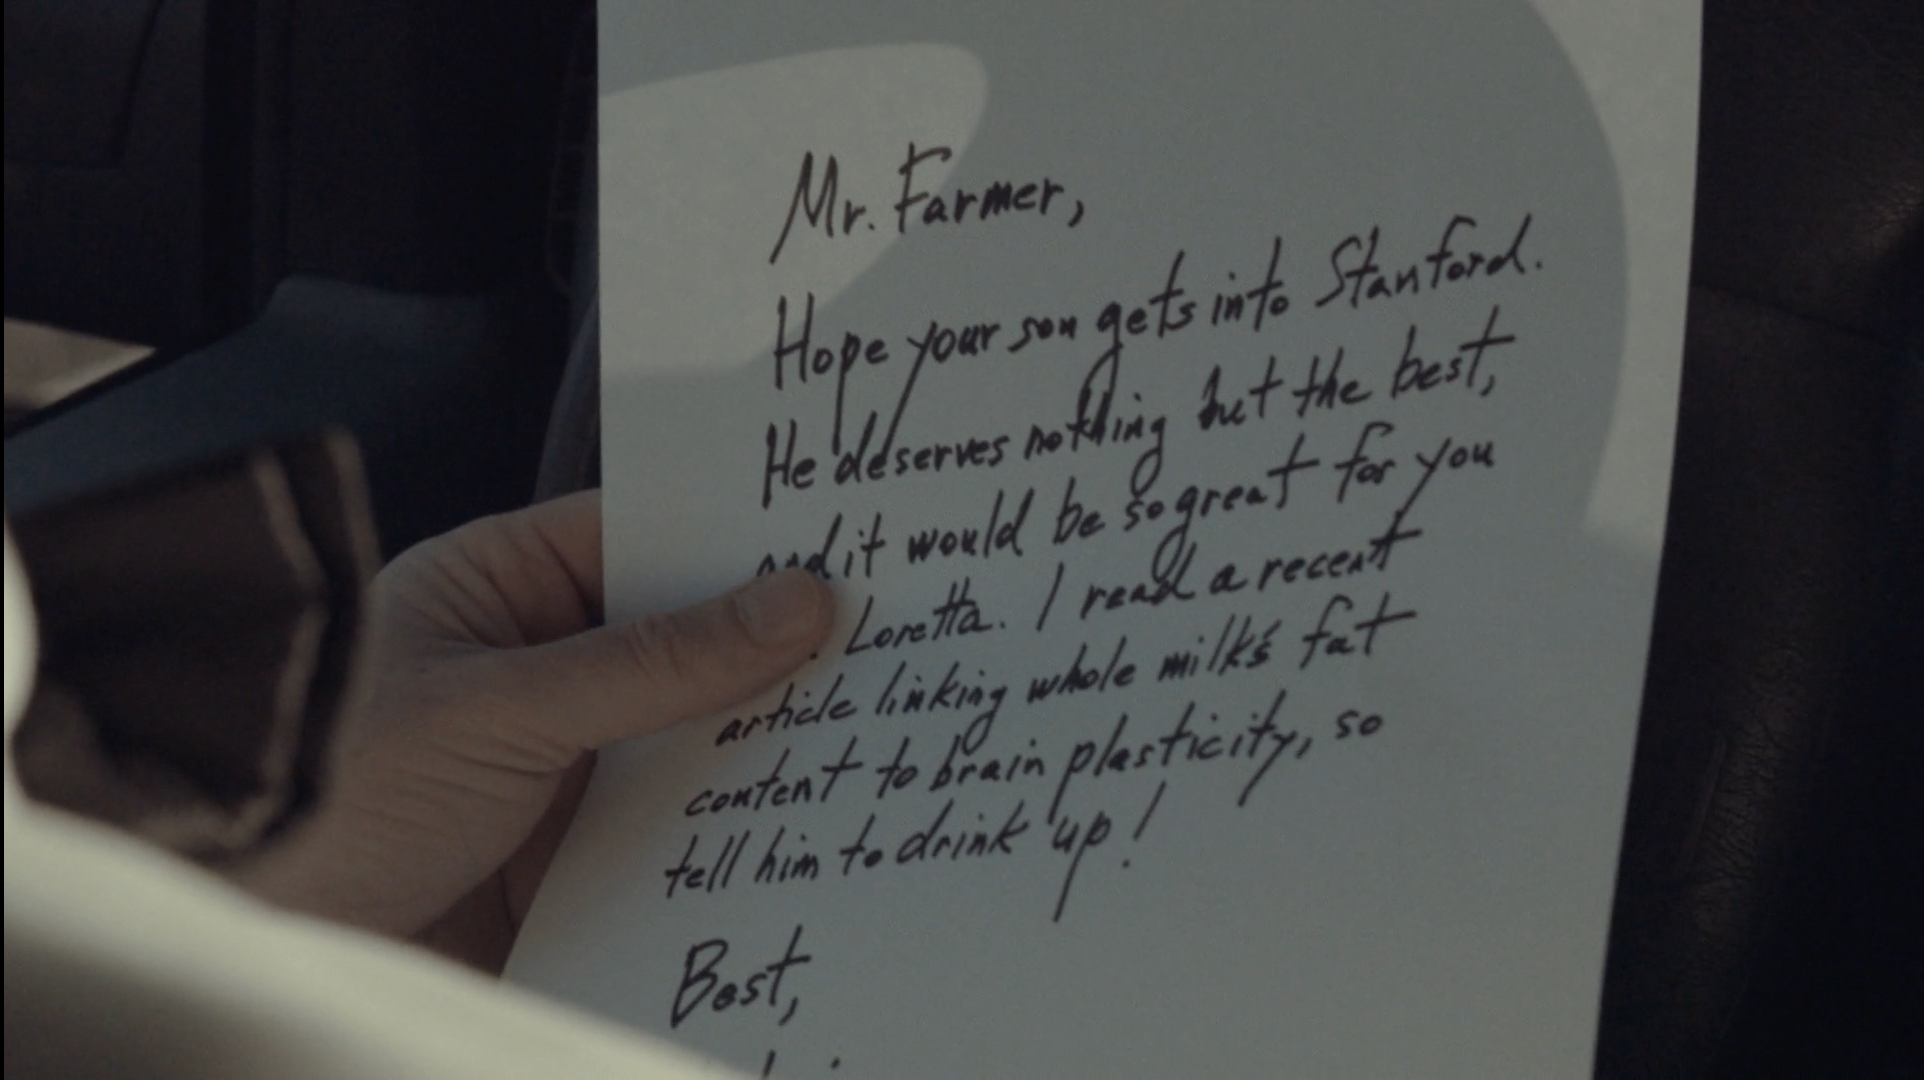 Mr. Farmer,
Hope your son gets into Stanford.
He deserves nothing but the best,
and it would be so great for you
Loretta. I read a recent
article linking whole milk's fat
content to brain plasticity, so
tell him to drink up!
Best,